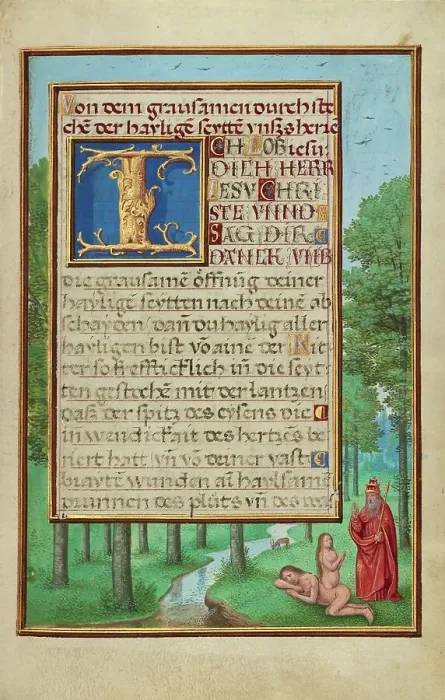 Von dem grausamen durchste
chē der hayligē seyttē vnszs herrē
ICH LOB iesu
DICH HERR
IESV CHRI
STE VNND
SAG DIR
DANCK VMB
die grausamē öffnūg deiner
hayligē seytten nach deinē ab
schayden dan̄ du haylig aller
hayligen bist vō ainē der Rit
ter so in die seyt
ten gestochē mit der lantzen
das der spitz des eysens die
in wendickait des hertzēs be
riert hatt vn̄ vō deiner vast
braytē wunden ain haylsamē
prunnen des pluts vn̄ des was